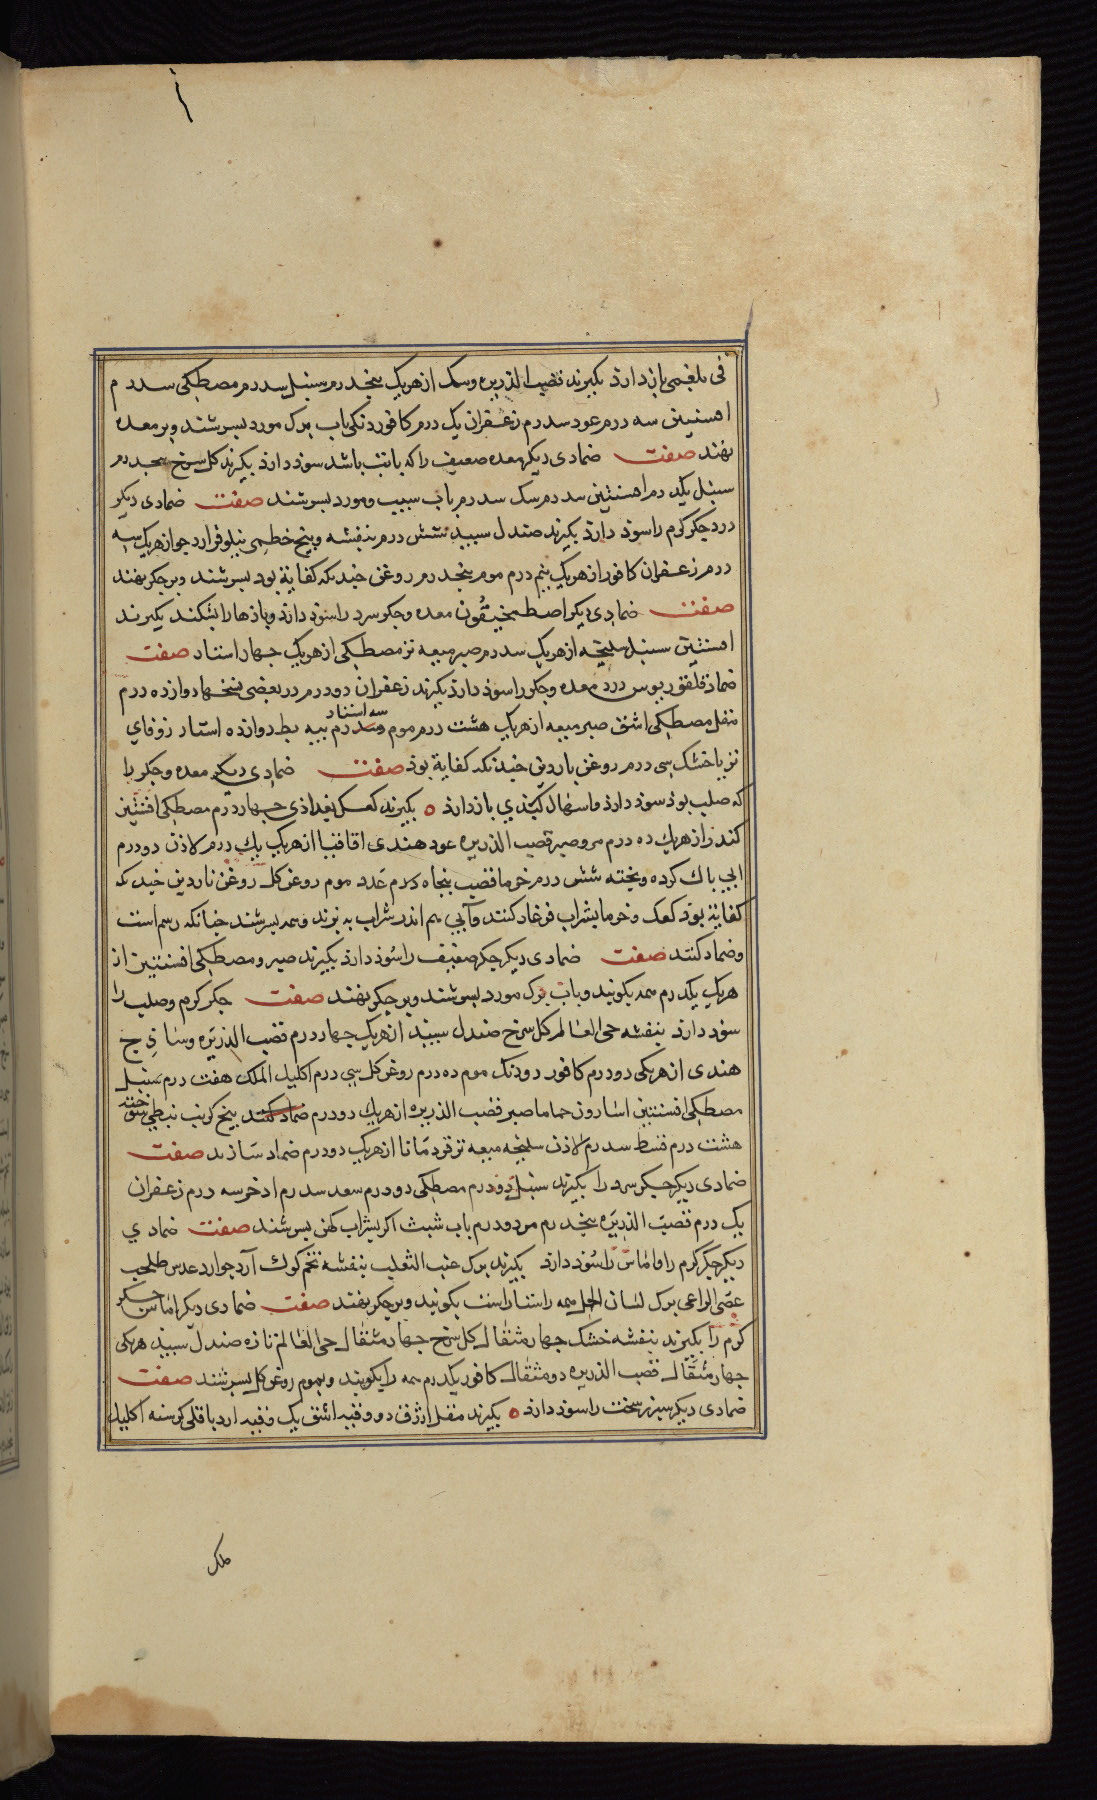 قی بلغمی باز دارد بکیرند قصب الذریره وسک از هریک پنجدرم سنبل سدرم مصطکی سدرم
افسنتین سه درم عود سدرم زعفران یک درم کافور دنکی باب برک مورد بسرشند وبر معده
نهند صفت ضمادی دیکر معده ضعیف را که باتب باشد سوذ دارد بکیرند کل سرخ پنجدرم
سنبل یکدرم افسنتین سدرم سک سدرم باب سیب ومورد بسرشند صفت ضمادی دیکر
درد جکر کرم را سوذ دارد بکیرند صندل سبید شش درم بنفشه وبیخ خطمی نیلوفر ارد جو از هریک سه
درم زعفران کافور از هریک نیم درم موم پنجدرم روغن خیدنکه کفایة بود بسرشند وبر جکر نهند
صفت ضمادی دیکر اصطمخیقون معده وجکر سرد را سوذ دارد وبازها را بشکند بکیرند
افسنتین سنبل سلیخه از هریک سدرم صبر میعه تر مصطکی از هریک جهار استار صفت
ضماد فلقوریوس درد معده وجکر را سوذ دارد بکیرند زعفران دودرم در بعضی نسخها دوازده درم
مقل مصطکی اشق صبر میعه از هریک هشت درم موم سه استار پیه بط دوازده استار زوفای
تر یا خشک سی درم روغن ناردین خیدنکه کفایة بوذ صفت ضمادی دیکر معده وجکر را
که صلب بوذ سوذ دارد واسهال کبدی باز دارد ه بکیرند کعک بغدادی جهار درم مصطکی افسنتین
کندر از هریک ده درم مر وصبر قصب الذریره عود هندی اقاقیا از هریک یک درم لاذن دودرم
ابی باک کرده وبخته شش درم خرما قصب بنجاه عدد موم روغن کل روغن ناردین خیدنکه
کفایة بوذ کعک وخرما بشراب فرغار کنند وآبی هم اندر شراب به بزند وهمه بسرشند جنانکه رسم است
وضماد کنند صفت ضمادی دیکر جکر ضعیف را سوذ دارد بکیرند صبر ومصطکی افسنتین از
هریک یکدرم همه بکوبند وباب برک مورد بسرشند وبر جکر نهند صفت جکر کرم وصلب را
سوذ دارد بنفشه حی العالم کل سرخ صندل سبید از هریک جهار درم قصب الذریره وساذج
هندی از هریکی دودرم کافور دودنک موم ده درم روغن کل سی درم اکلیل الملک هفت درم سنبل
مصطکی افسنتین اسارون حماما صبر قصب الذریره از هریک دودرم ضماد کنند بیخ کرنب نبطی سوخته
هشت درم قسط سدرم لاذن سلیخه میعه تر قردمانا از هریک دودرم ضماد سازند صفت
ضمادی دیکر جکر سرد را بکیرند سنبل دودرم مصطکی دودرم سعد سدرم اذخر سه درم زعفران
یک درم قصب الذریره پنجدرم مر دودرم باب شبث اکر بشراب کهن بسرشند صفت ضمادی
دیکر جکر کرم را واماس را سوذ دارد بکیرند برک عنب الثعلب بنفشه تخم کوک آرد جو ارد عدس طحلب
عصی الراعی برک لسان الحمل همه راستا راست بکوبند وبر جکر نهند صفت ضمادی دیکر اماس جکر
کرم را بکیرند بنفشه خشک جهار مثقال کل سرخ جهار مثقال حی العالم تازه صندل سبید هریکی
جهار مثقال قصب الذریره دو مثقال کافور یکدرم همه را بکوبند وبموم روغن کل بسرشند صفت
ضمادی دیکر سبرز سخت را سوذ دارد ه بکیرند مقل ازرق دو وقیه اشق یک وقیه ارد باقلی کرسنه اکلیل